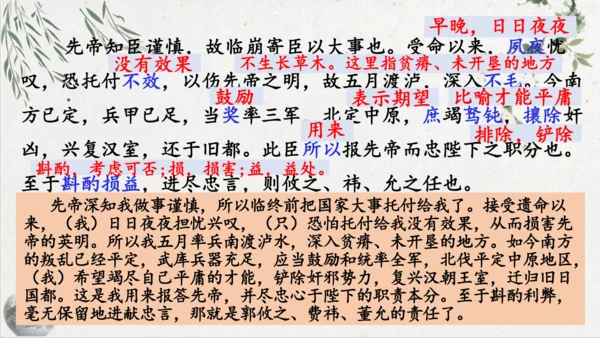 早晚，日日夜夜
先帝知臣谨慎，故临崩寄臣以大事也。受命以来，夙夜忧
没有效果
不生长草木。这里指贫瘠、未开垦的地方
叹，恐托付不效，以伤先帝之明，故五月渡泸，深入不毛。今南
鼓励
表示期望
比喻才能平庸
方已定，兵甲已足，当奖率三军，北定中原，庶竭驽钝，攘除奸
用来
排除，铲除
凶，兴复汉室，还于旧都。此臣所以报先帝而忠陛下之职分也。
斟酌，考虑可否;损，损害;益，益处。
至于斟酌损益，进尽忠言，则攸之、祎、允之任也。
先帝深知我做事谨慎，所以临终前把国家大事托付给我了。接受遗命以
来，（我）日日夜夜担忧兴叹，（只）恐怕托付给我没有效果，从而损害先
帝的英明。所以我五月率兵南渡泸水，深入贫瘠、未开垦的地方。如今南方
的叛乱已经平定，武库兵器充足，应当鼓励和统率全军，北伐平定中原地区，
（我）希望竭尽自己平庸的才能，铲除奸邪势力，复兴汉朝王室，迁归旧日
国都。这是我用来报答先帝，并尽忠心于陛下的职责本分。至于斟酌利弊，
毫无保留地进献忠言，那就是郭攸之、费祎、董允的责任了。